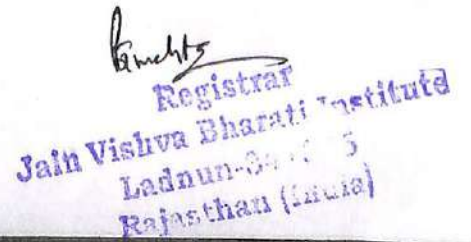 Registrar
Jain Vishva Bharati Institute
Ladnun-
Rajasthan (India)